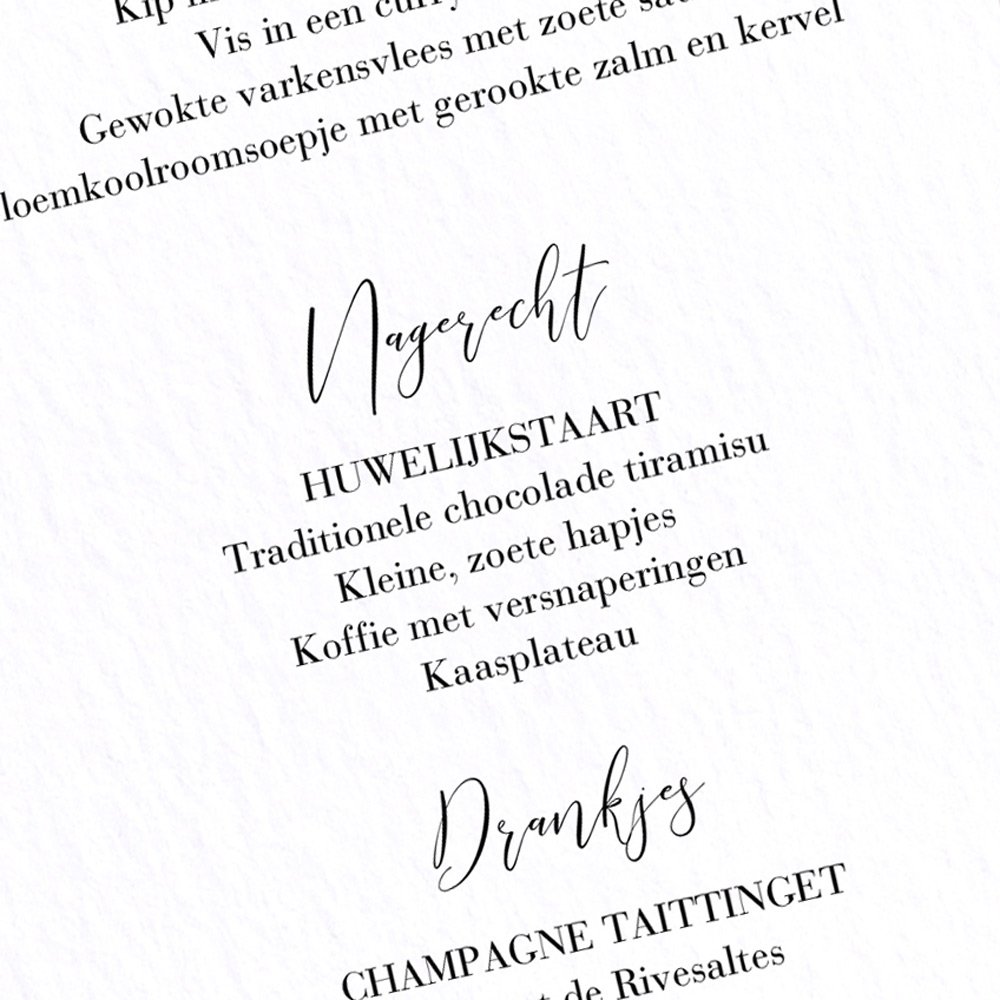 Kip
Vis in een curry
Gewokte varkensvlees met zoete
loemkoolroomsoepje met gerookte zalm en kervel
Nagerecht
HUWELIJKSTAART
Traditionele chocolade tiramisu
Kleine, zoete hapjes
Koffie met versnaperingen
Kaasplateau
Drankjes
CHAMPAGNE TAITTINGET
de Rivesaltes